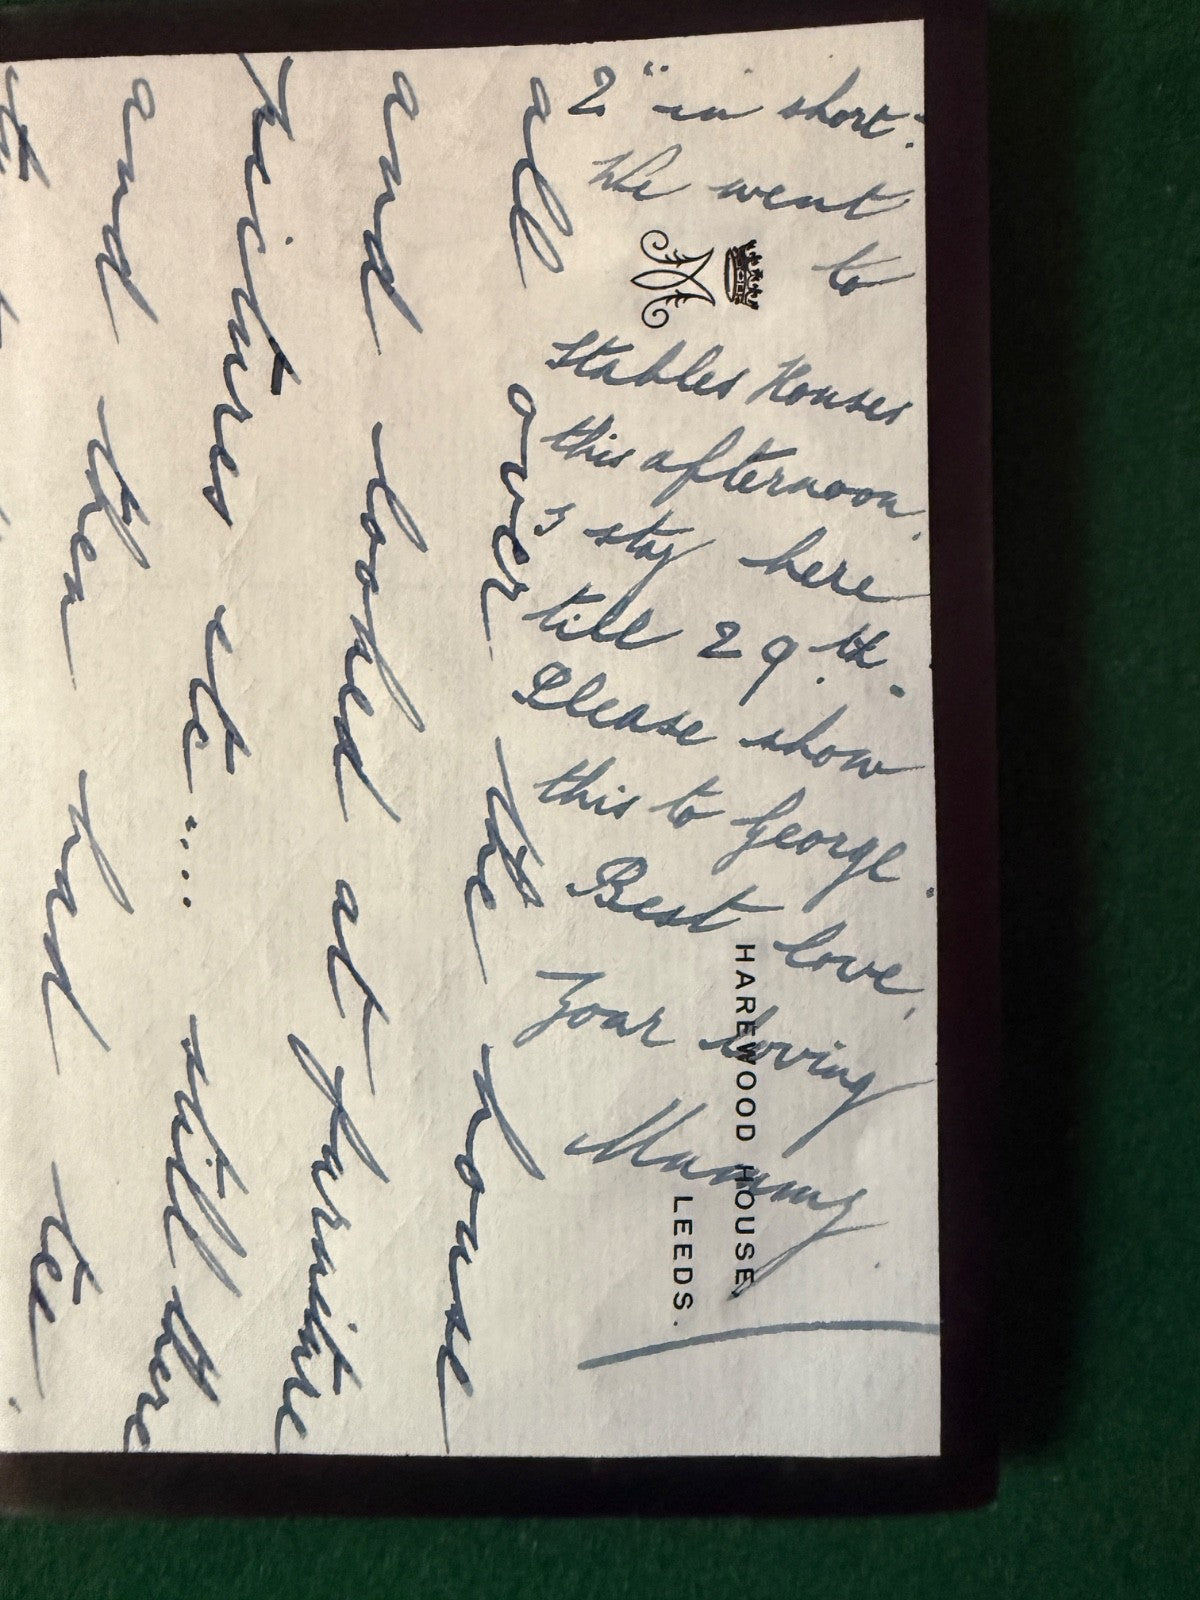 HAREWOOD HOUSE,
LEEDS.
all over the house
and looked at furniture
pictures etc.... still there
and then had tea
2 " in short.
We went
to
Stables Houses
this afternoon.
stay here
till 29th.
Please show
this to George.
Best love,
Your loving
Mummy